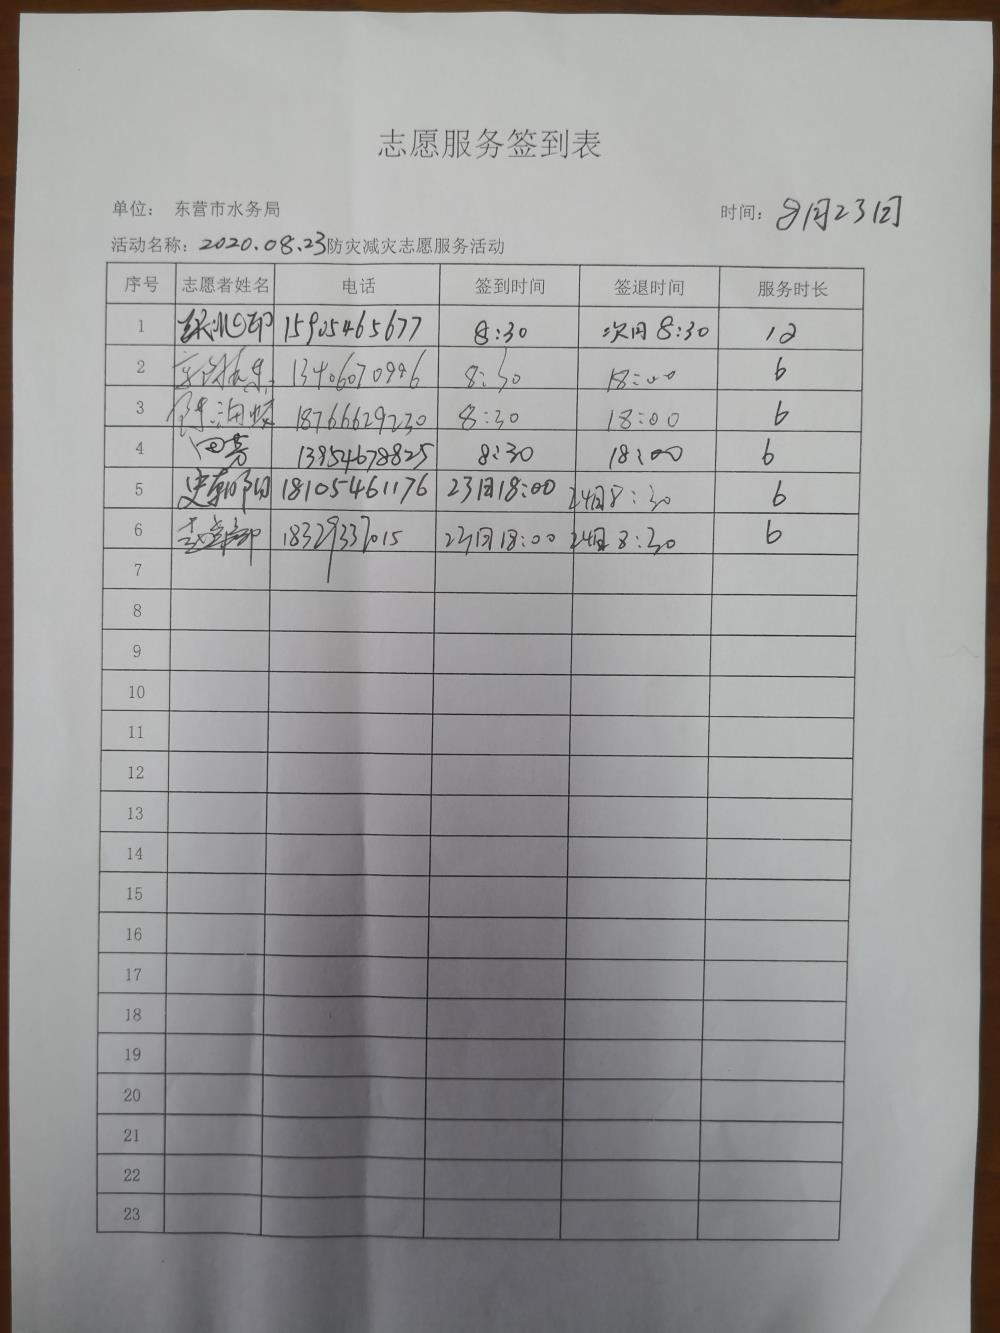 志愿服务签到表
单位： 东营市水务局 时间：8月23日
活动名称：2020.08.23防灾减灾志愿服务活动
序号 志愿者姓名 电话 签到时间 签退时间 服务时长
1 15905465677 8:30 次日8:30 12
2 8:30 18:00 6
3 18766629230 8:30 18:00 6
4 田芳 13954678825 8:30 18:00 6
5 史朝阳 18105461176 23日18:00 24日8:30 6
6 18329337015 23日18:00 24日8:30 6
7
8
9
10
11
12
13
14
15
16
17
18
19
20
21
22
23